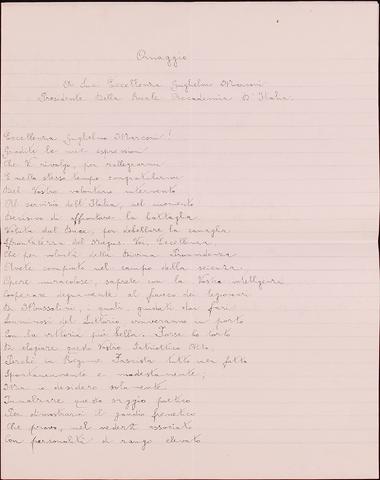 Omaggio
A Sua Eccellenza Guglielmo Marconi
Presidente Della Reale Accademia D'Italia.
Eccellenza Guglielmo Marconi!
Gradite le mie espressioni
Che Vi rivolgo, per rallegrarmi
E nello stesso tempo congratularmi
Del Vostro volontario intervento
Al servizio dell'Italia, nel momento
Decisivo di affrontare la battaglia
Voluta dal Duce, per debellare la canaglia
del Negus. Voi, Eccellenza,
Che per volontà della Divina Provvidenza
Avete compiuto nel campo della scienza
Opere miracolose, saprete con la Vostra intelligenza
Cooperare degnamente al fianco dei legionari
Di Mussolini, i quali, guidati dai fari
Luminosi del Littorio arriveranno in porto
Con la vittoria più bella. Forse ho torto
Di elogiare questo Vostro Patriottico Atto,
Perchè in Regime Fascista tutto vien fatto
Spontaneamente e modestamente;
Ma io desidero solamente
Innalzare questo saggio poetico
Per dimostrarvi il gaudio frenetico
Che provo, nel vedervi associato
Con personalità di rango elevato